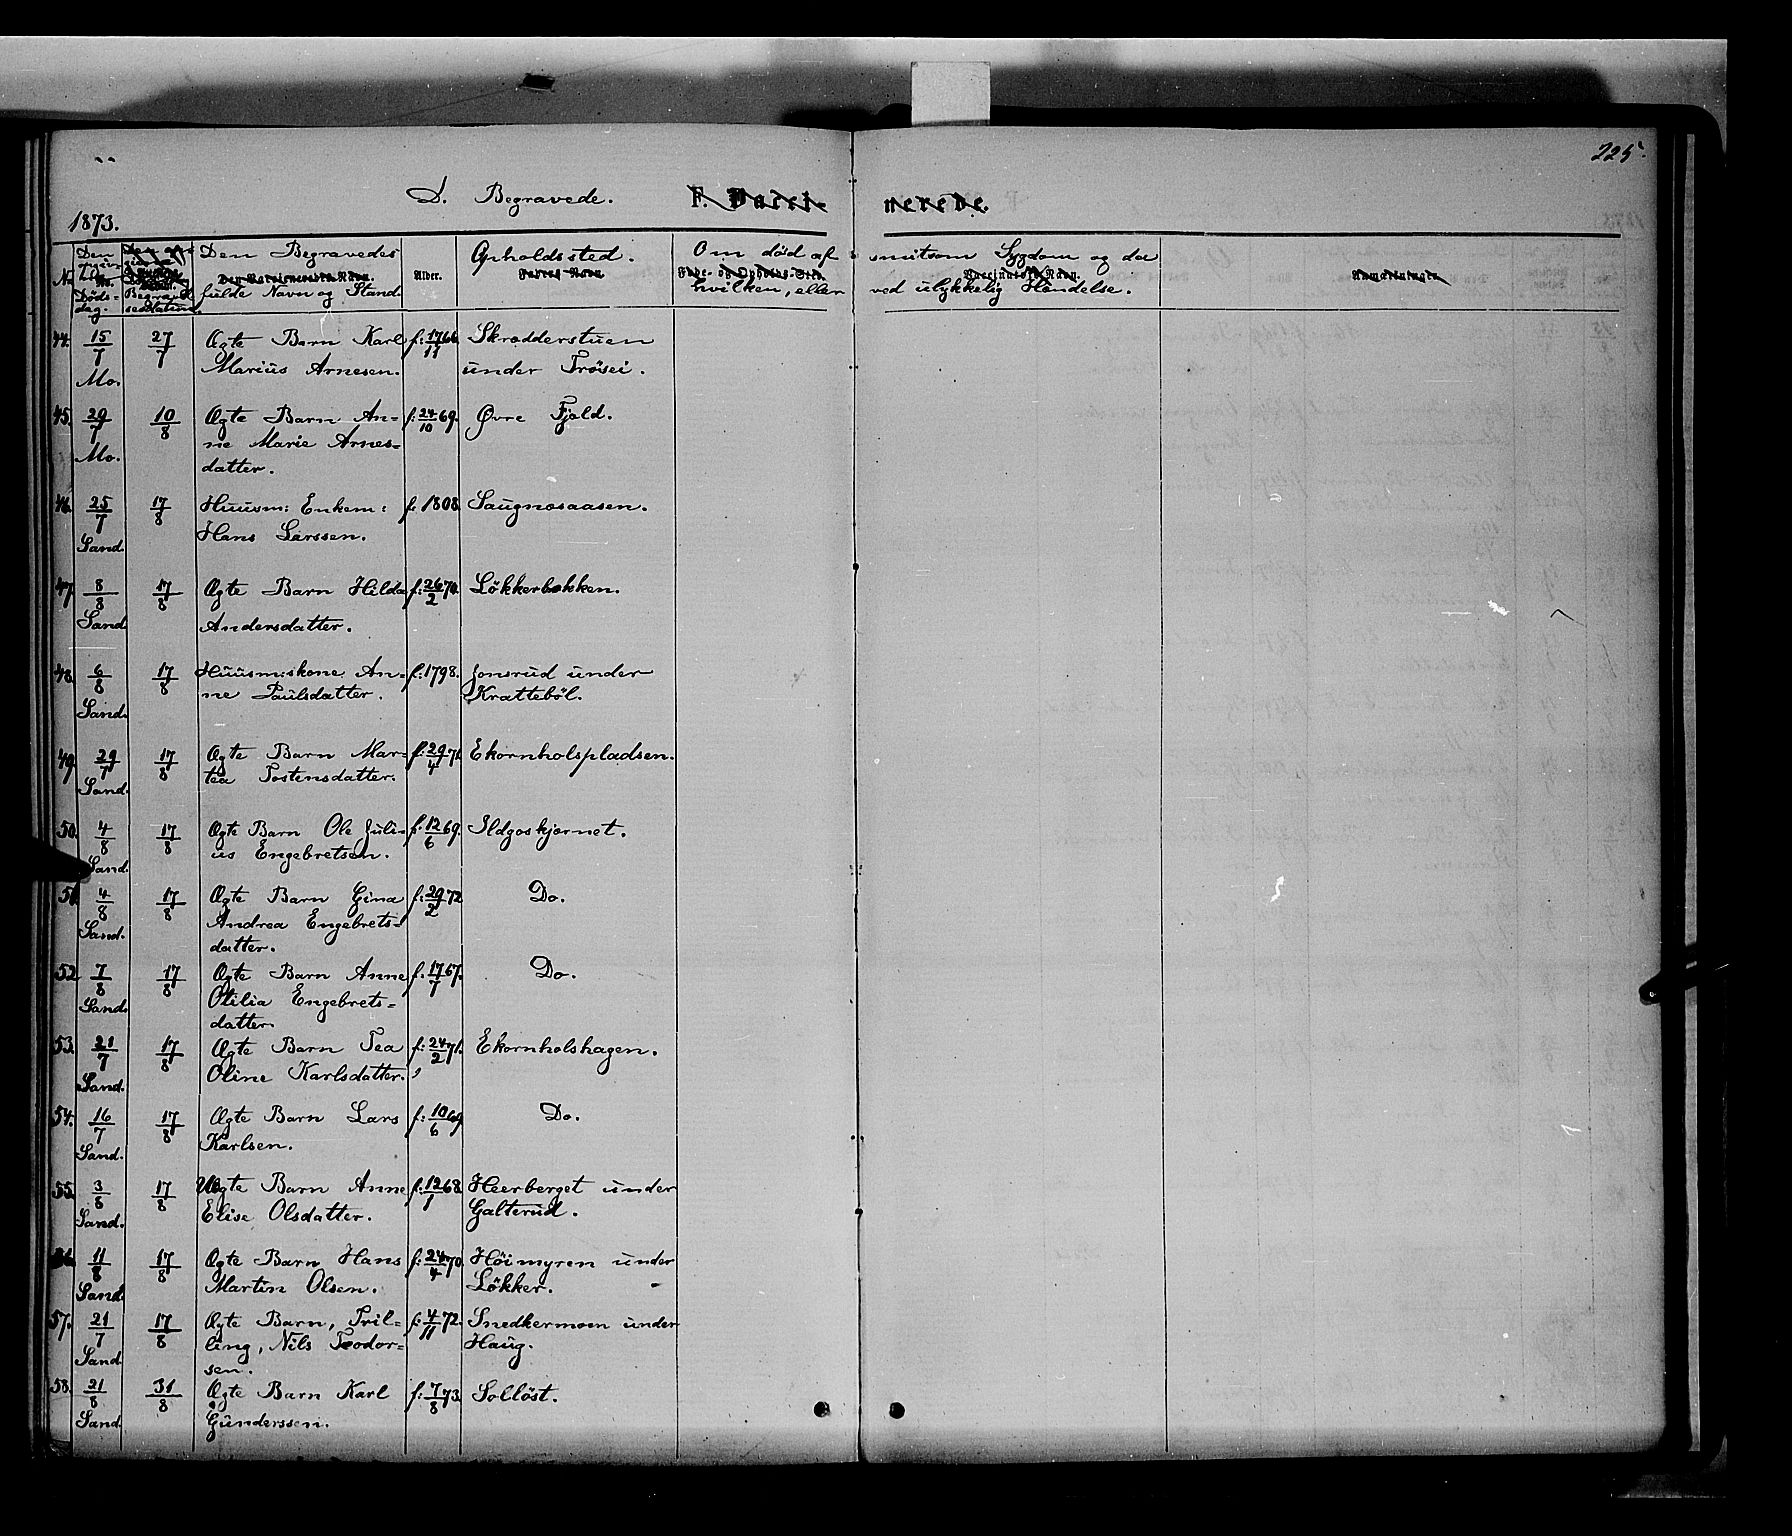 225.
D. Begravede. F. Vacci- nerede.
1873.
No. Den Begravedes fulde Navn og Stand. Den Vaccineredes Navn. Alder. Opholdssted. Fadres Navn Om död af smitsom Sygdom og da hvilken, eller ved ulykkelig Hændelse. Anmærkninger.
Döds-dag. Begravelsesdatum.
44. 15/7 27/7 Ægte Barn Karl f: 17/11 66. Skrædderstuen
Mo. Marius Arnesen. under Tröisei.
45. 29/7 10/8 Ægte Barn An- f: 24/10 69. Øvre Fjeld.
Mo. ne Marie Arnes-
datter.
46. 25/7 17/8 Huusm: Enkem: f. 1808. Saugnæsaasen.
Sand. Hans Larssen.
47. 8/8 17/8 Ægte Barn Hilda f: 26/2 70. Lökkerbækken.
Sand. Andersdatter.
48. 6/8 17/8 Huusm:skone An- f: 1798. Jonsrud under
Sand. ne Paulsdatter. Krattebøl.
49. 29/7 17/8 Ægte Barn Mar- f: 29/4 71. Ekornholspladsen.
Sand. tea Tostensdatter.
50. 4/8 17/8 Ægte Barn Ole Juli- f: 12/6 69. Ildgoskjærnet.
Sand. us Engebretsen.
51. 4/8 17/8 Ægte Barn Gina f: 29/2 72 Do.
Sand. Andrea Engebrets-
datter.
52. 7/8 17/8 Ægte Barn Anne f. 17/7 67. Do.
Sand. Otilia Engebrets-
datter.
53. 21/7 17/8 Ægte Barn Tea f: 24/2 71. Ekornholshagen.
Sand. Oline Karlsdatter.
54. 16/7 17/8 Ægte Barn Lars f: 10/6 69 Do.
Sand. Karlsen.
55. 3/8 17/8 Uægte Barn Anne f: 12/1 68. Heerberget under
Sand. Elise Olsdatter. Galterud.
56. 11/8 17/8 Ægte Barn Hans f: 24/4 70. Höimyren under
Sand. Martin Olsen. Lökker.
57. 21/7 17/8 Ægte Barn, Tril- f: 4/11 72. Snedkermoen under
Sand. ling, Nils Teodor- Haug.
sen.
58. 21/8 31/8 Ægte Barn Karl f: 7/8 73. Solløst.
Sand. Gunderssen.